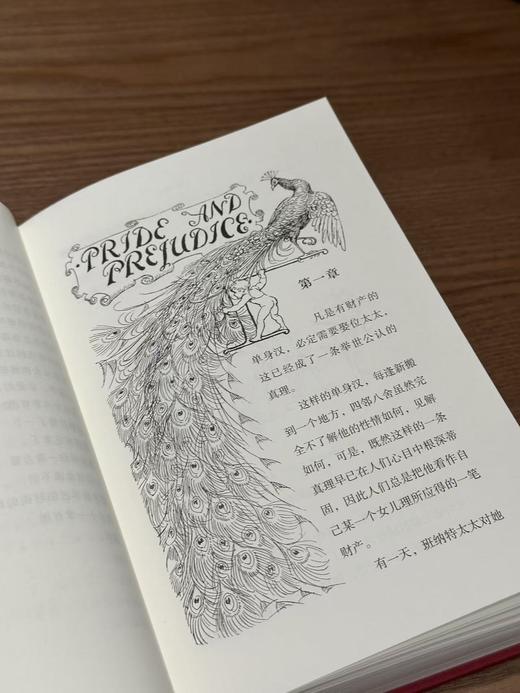 PRIDE AND
PREJUDICE
第一章
凡是有财产的
单身汉，必定需要娶位太太，
这已经成了一条举世公认的
真理。
这样的单身汉，每逢新搬
到一个地方，四邻八舍虽然完
全不了解他的性情如何，见解
如何，可是，既然这样的一条
真理早已在人们心目中根深蒂
固，因此人们总是把他看作自
己某一个女儿理所应得的一笔
财产。
有一天，班纳特太太对她